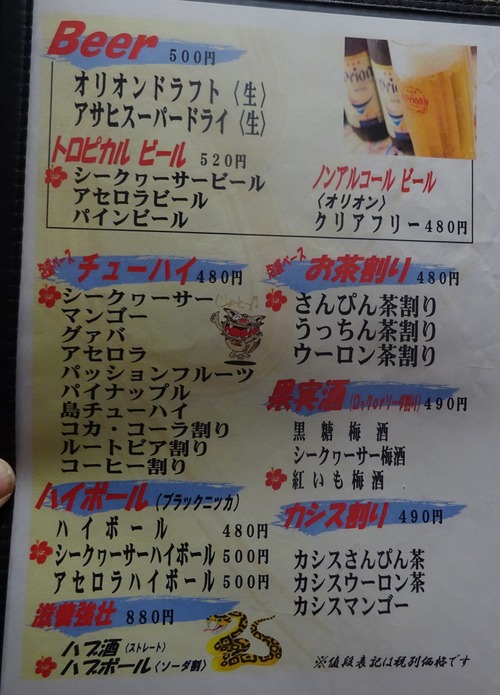 Beer 500円
オリオンドラフト〈生〉
アサヒスーパードライ〈生〉
トロピカル ビール 520円
シークヮーサービール
アセロラビール
パインビール
ノンアルコール ビール
〈オリオン〉
クリアフリー 480円
泡盛ベース チューハイ 480円
シークヮーサー
マンゴー
グァバ
アセロラ
パッションフルーツ
パイナップル
島チューハイ
コカ・コーラ割り
ルートビア割り
コーヒー割り
泡盛ベース お茶割り 480円
さんぴん茶割り
うっちん茶割り
ウーロン茶割り
果実酒(ロックorソーダ割り) 490円
黒糖梅酒
シークヮーサー梅酒
紅いも梅酒
ハイボール(ブラックニッカ)
ハイボール 480円
シークヮーサーハイボール 500円
アセロラハイボール 500円
カシス割り 490円
カシスさんぴん茶
カシスウーロン茶
カシスマンゴー
滋養強壮 880円
ハブ酒〈ストレート〉
ハブボール〈ソーダ割〉
※値段表記は税別価格です